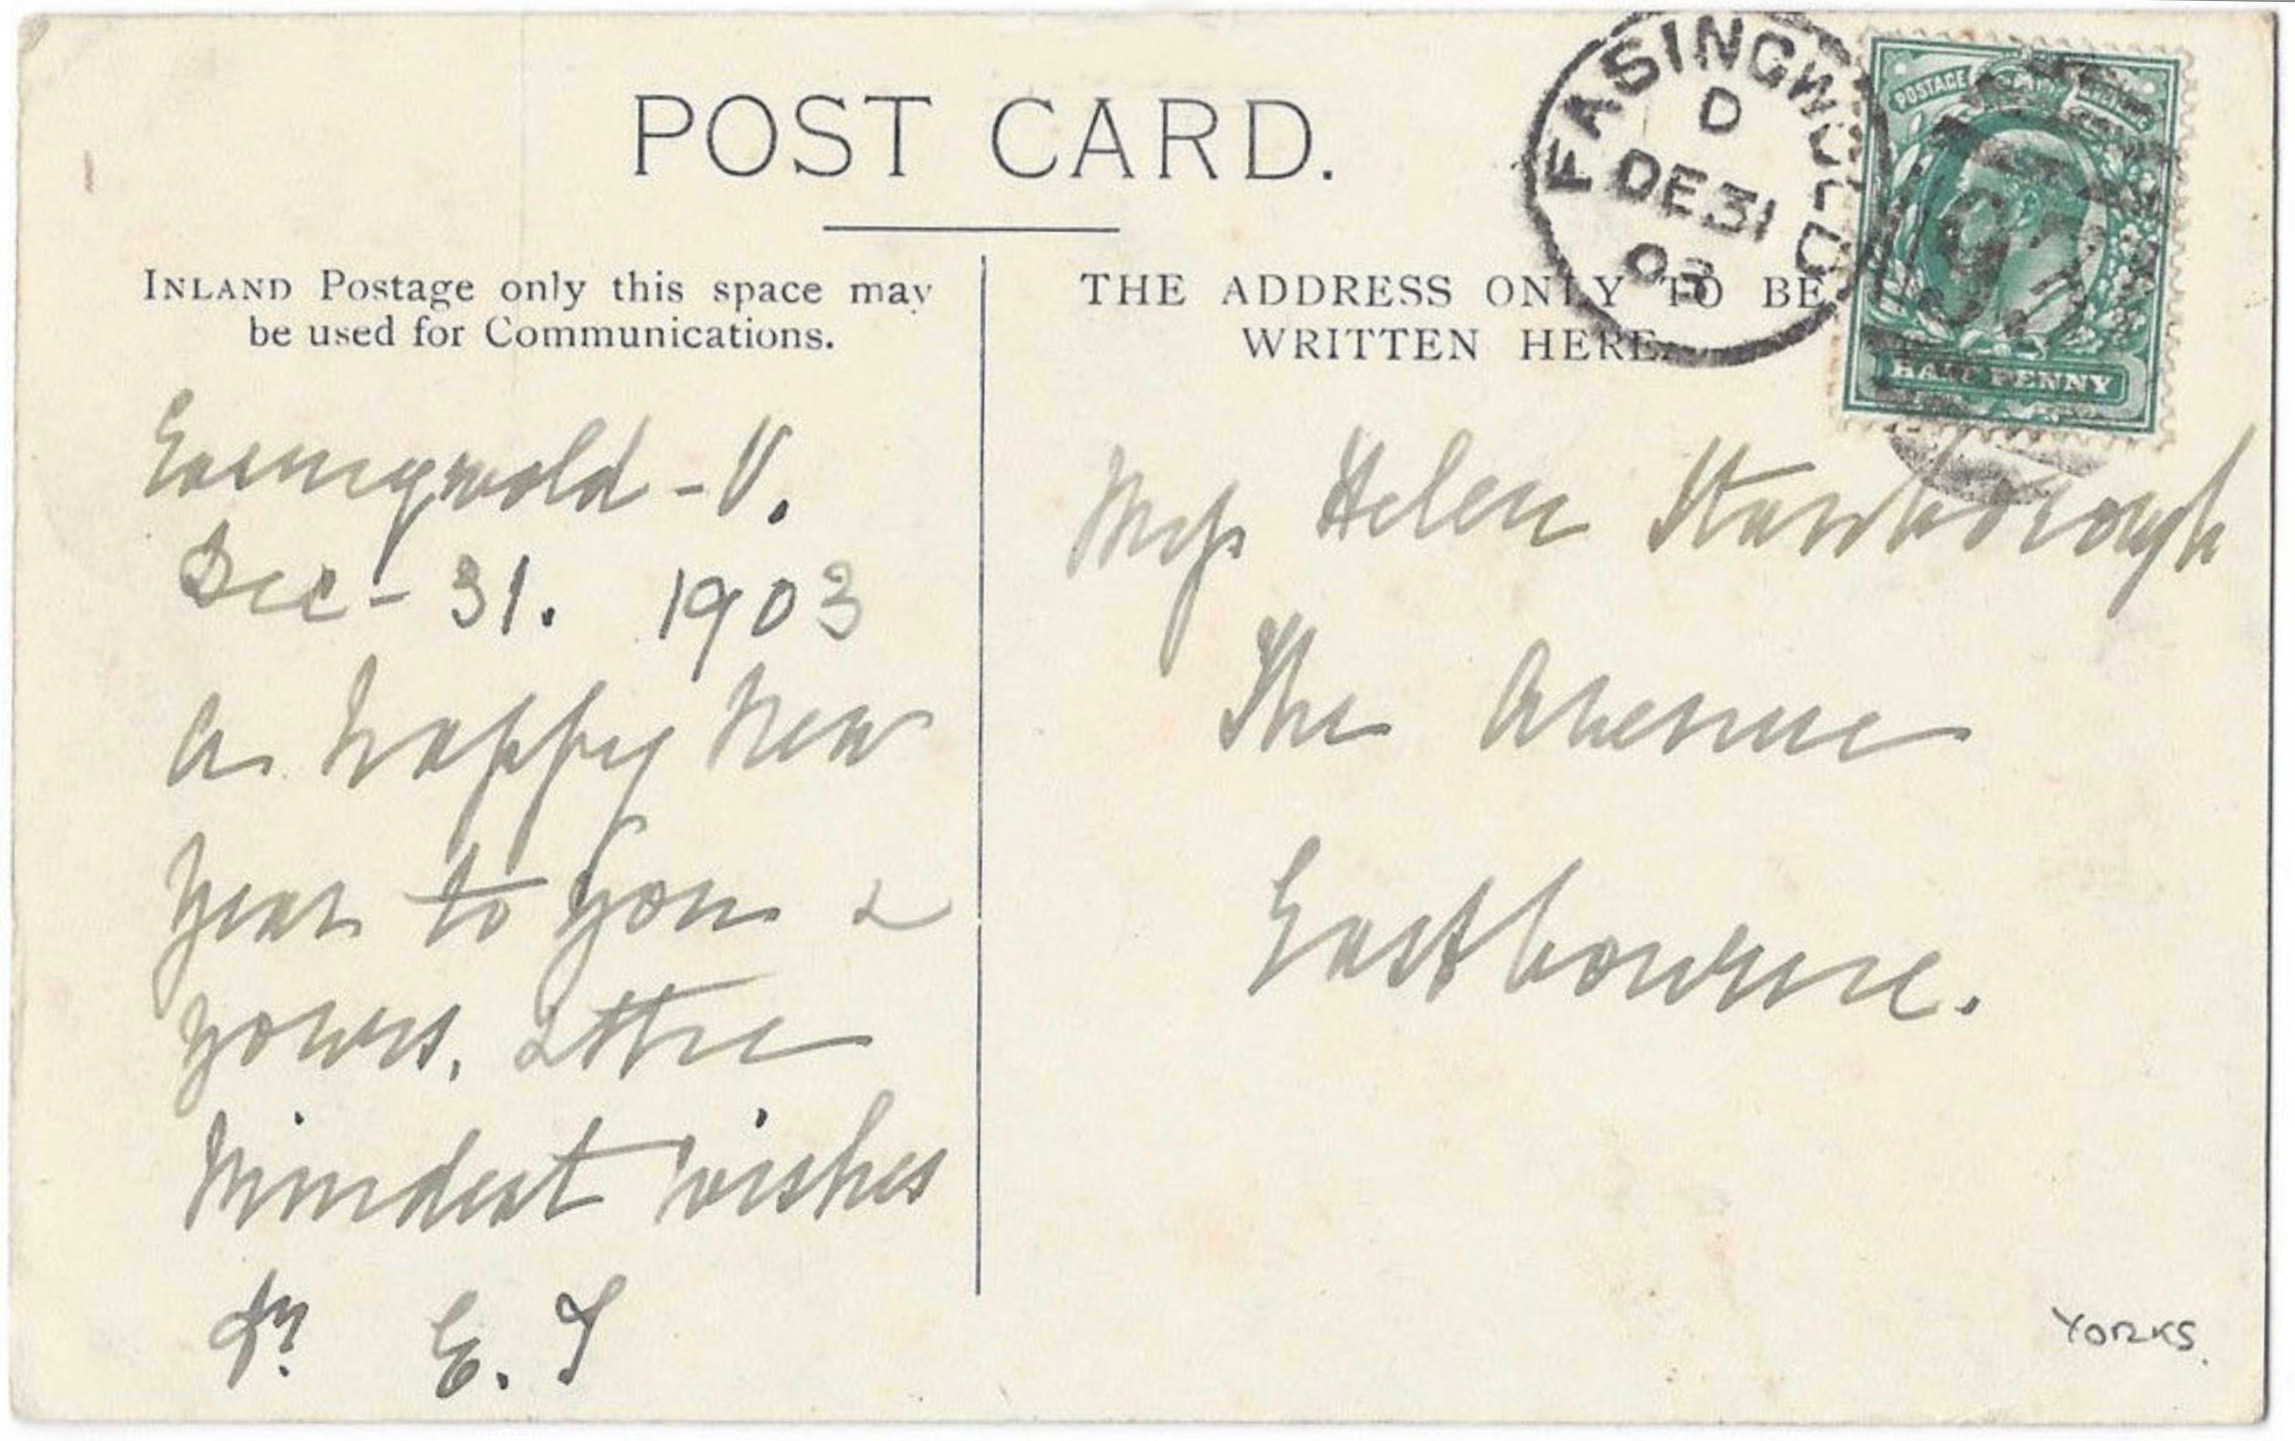 POST CARD.
EASINGWOLD
D
DE 31
03
POSTAGE
HALF PENNY
INLAND Postage only this space may
be used for Communications.
Easingwold - V.
Dec - 31. 1903
A happy New
Year to you &
yours, & the
kindest wishes
E. T
THE ADDRESS ONLY TO BE
WRITTEN HERE.
Miss Helen
The Avenue
Eastbourne.
YORKS.